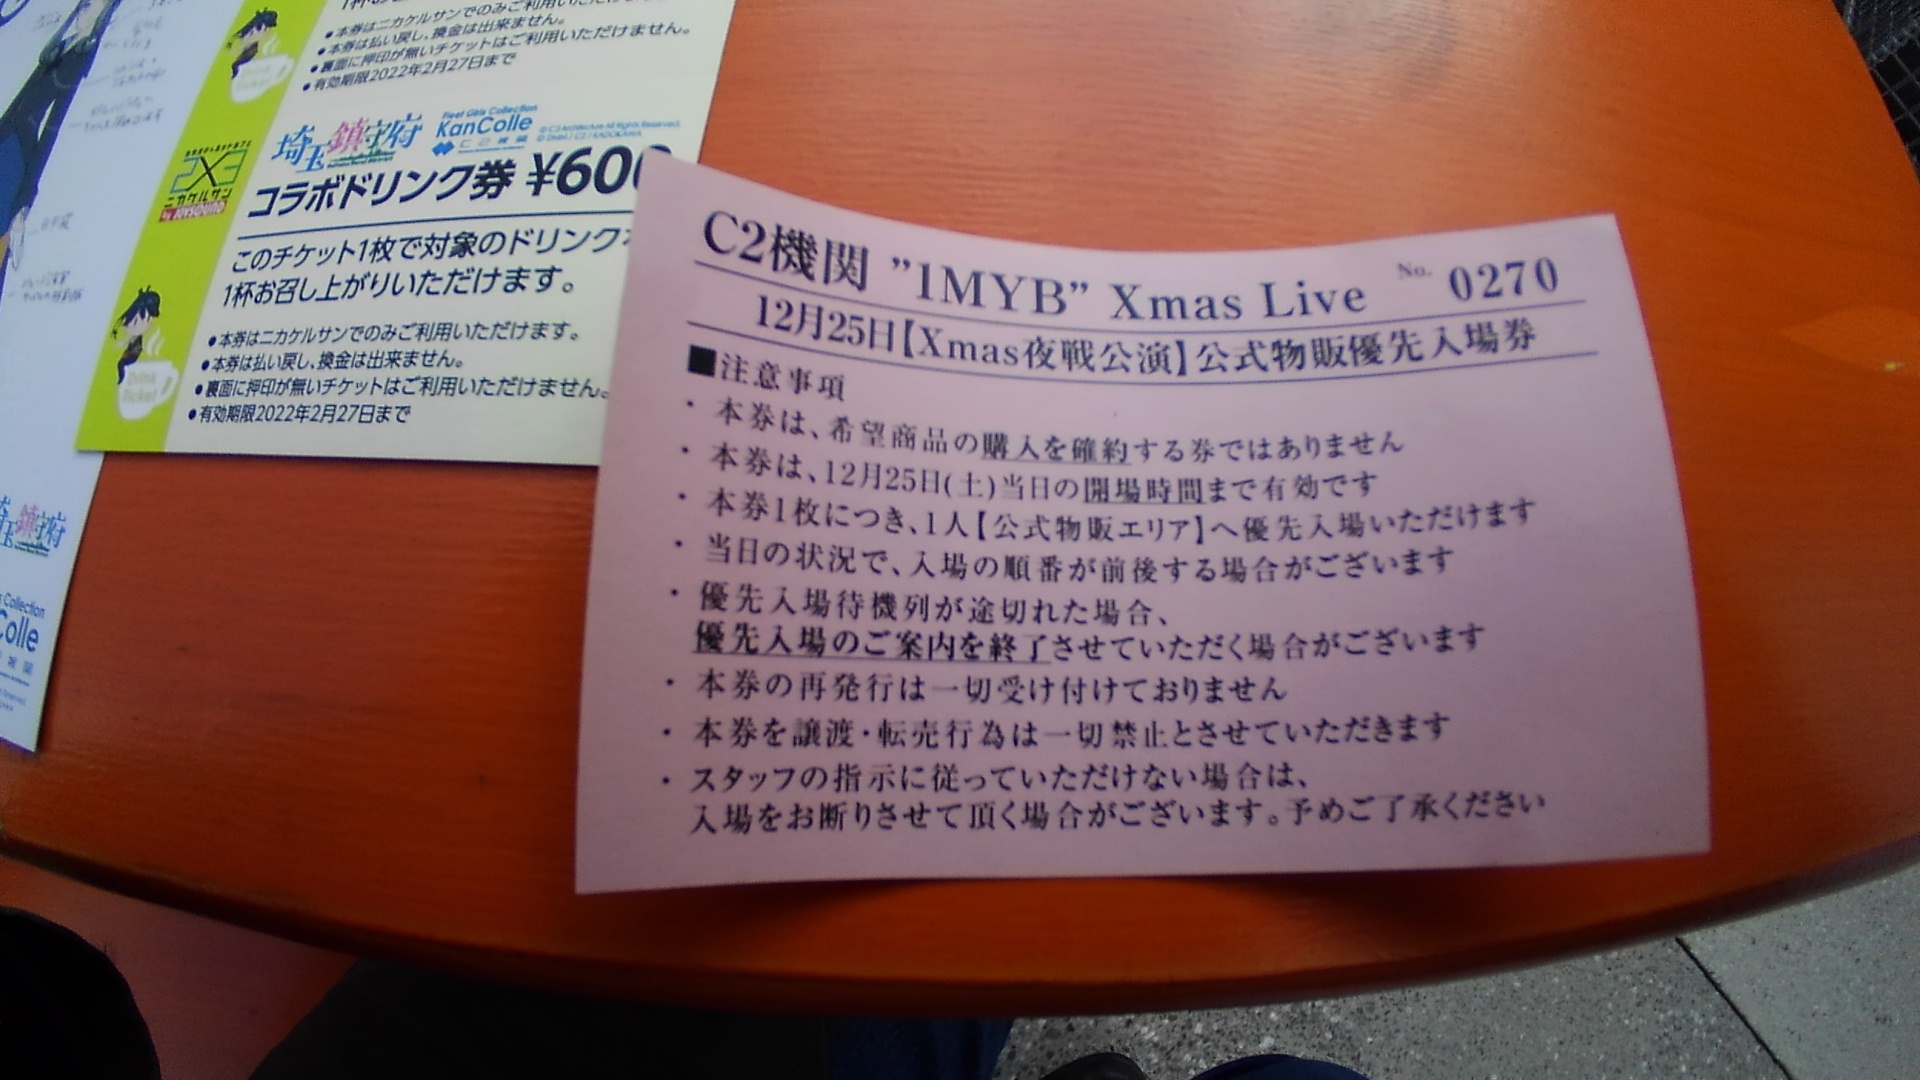 •本券はニカケルサンでのみご利用いただけます。
•本券は払い戻し、換金は出来ません。
•裏面に押印が無いチケットはご利用いただけません。
•有効期限2022年2月27日まで
埼玉鎮守府
Fleet Girls Collection
KanColle
C2機関
©C2Architecture All Rights Reserved.
2X3
ニカケルサン
by JOYSOUND
コラボドリンク券 ¥600
このチケット1枚で対象のドリンク
1杯お召し上がりいただけます。
Drink Ticket
•本券はニカケルサンでのみご利用いただけます。
•本券は払い戻し、換金は出来ません。
•裏面に押印が無いチケットはご利用いただけません。
•有効期限2022年2月27日まで
埼玉鎮守府
Collection
Colle
C2機関 ”1MYB” Xmas Live No. 0270
12月25日【Xmas夜戦公演】公式物販優先入場券
■注意事項
・本券は、希望商品の購入を確約する券ではありません
・本券は、12月25日(土)当日の開場時間まで有効です
・本券1枚につき、1人【公式物販エリア】へ優先入場いただけます
・当日の状況で、入場の順番が前後する場合がございます
・優先入場待機列が途切れた場合、
優先入場のご案内を終了させていただく場合がございます
・本券の再発行は一切受け付けておりません
・本券を譲渡・転売行為は一切禁止とさせていただきます
・スタッフの指示に従っていただけない場合は、
入場をお断りさせて頂く場合がございます。予めご了承ください